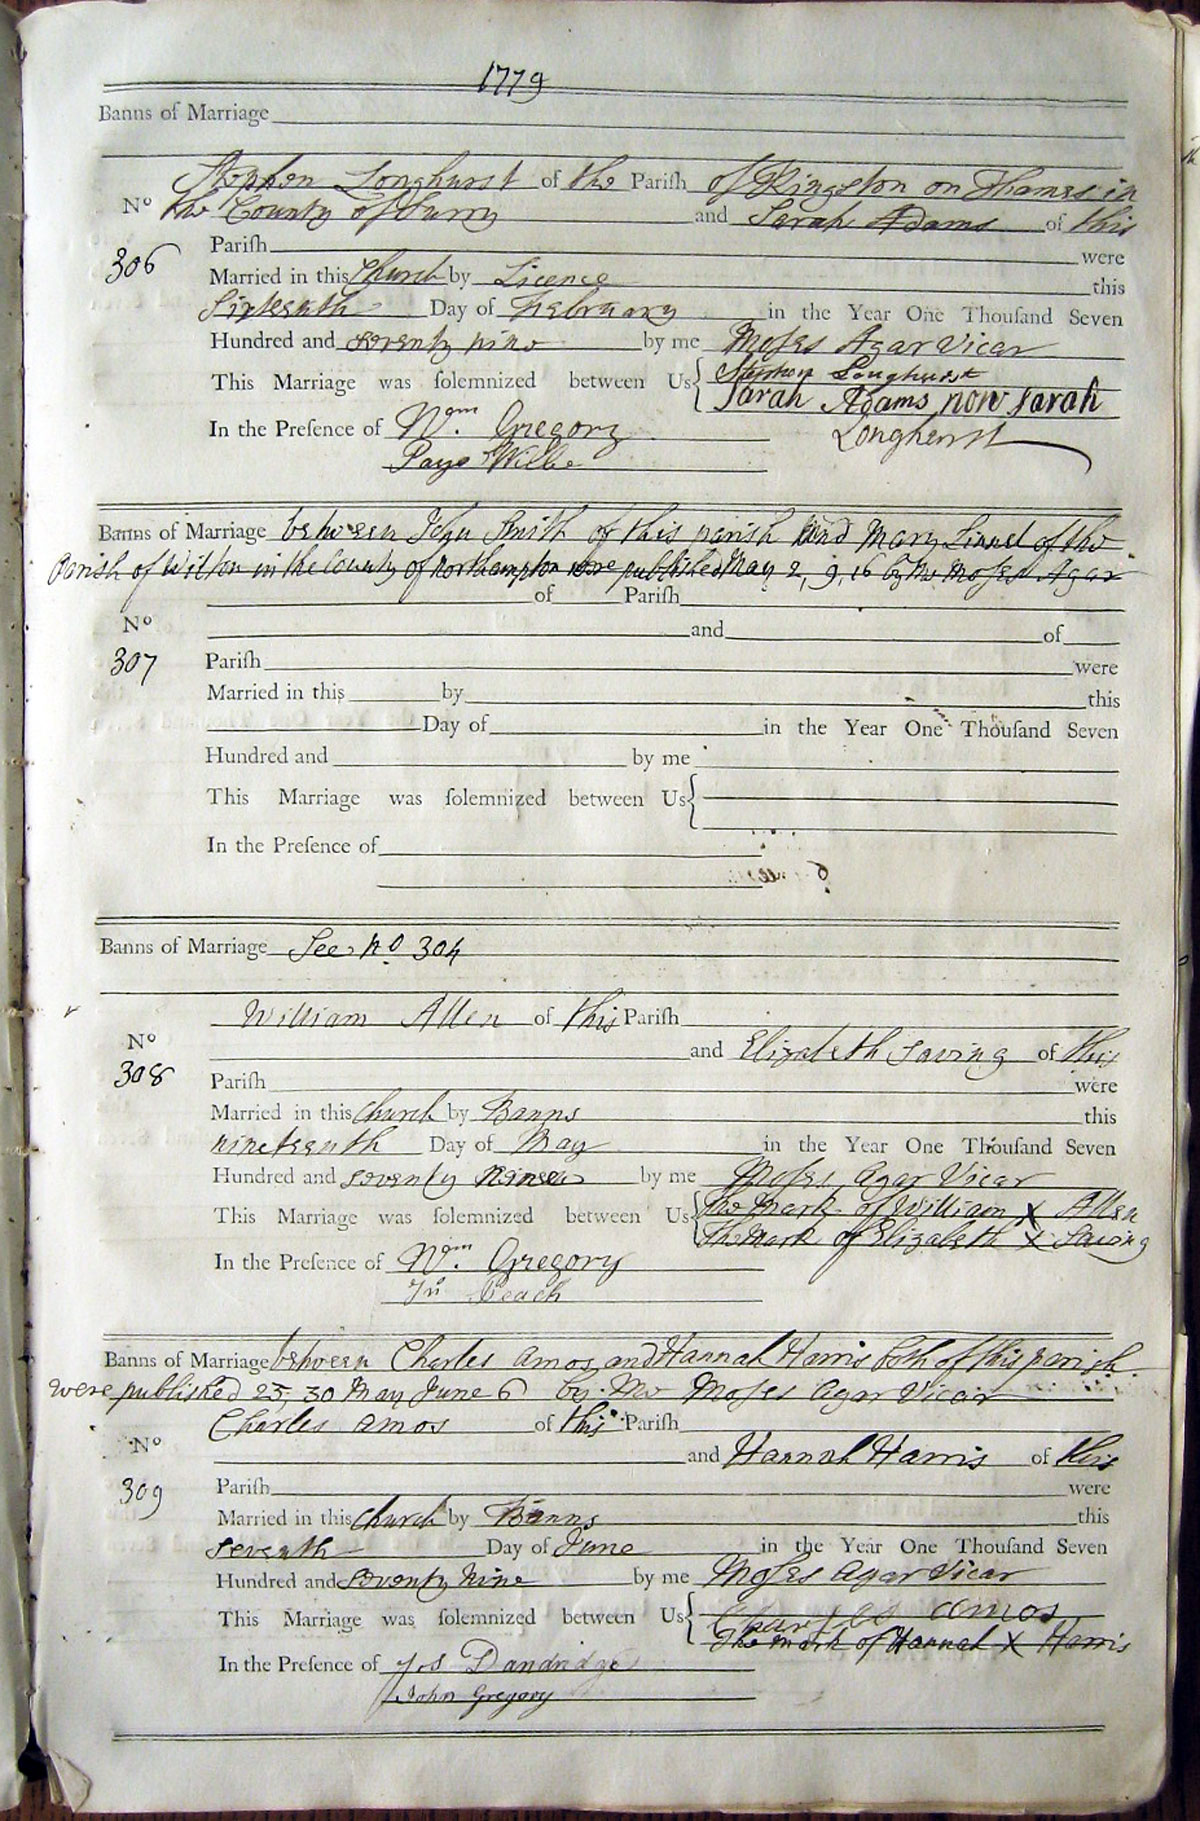 1779
Banns of Marriage
Stephen Longhurst of the Pariſh of Kingston on Thames in
No the County of Surry and Sarah Adams of this
306
Pariſh were
Married in this Church by Licence this
Sixteenth Day of February in the Year One Thouſand Seven
Hundred and seventy nine by me Moses Agar Vicar
This Marriage was ſolemnized between Us { Stephen Longhurst
Sarah Adams now sarah
Longherst
In the Preſence of Wm. Gregory
Banns of Marriage between John Smith of this parish and Mary Linnel of the
Parish of Wilton in the County of Northampton were published May 2, 9, 16 by Mr Moses Agar
of Pariſh
No
and of
307
Pariſh were
Married in this by this
Day of in the Year One Thouſand Seven
Hundred and by me
This Marriage was ſolemnized between Us {
In the Preſence of
Banns of Marriage See no 304
William Allen of this Pariſh
No
and Elizabeth Saving of this
308
Pariſh were
Married in this Church by Banns this
nineteenth Day of May in the Year One Thouſand Seven
Hundred and seventy Nine by me Moses Agar Vicar
This Marriage was ſolemnized between Us { The Mark of William X Allen
The Mark of Elizabeth X Saving
In the Preſence of Wm. Gregory
Jn Beach
Banns of Marriage between Charles Amos and Hannah Harris both of this parish
were published 23, 30 May June 6 by Mr Moses Agar Vicar
Charles Amos of this Pariſh
No
and Hannah Harris of this
309
Pariſh were
Married in this Church by Banns this
seventh Day of June in the Year One Thouſand Seven
Hundred and seventy Nine by me Moses Agar Vicar
This Marriage was ſolemnized between Us { Charles amos
The mark of Hannah X Harris
In the Preſence of Jos Dandridge
John Gregory